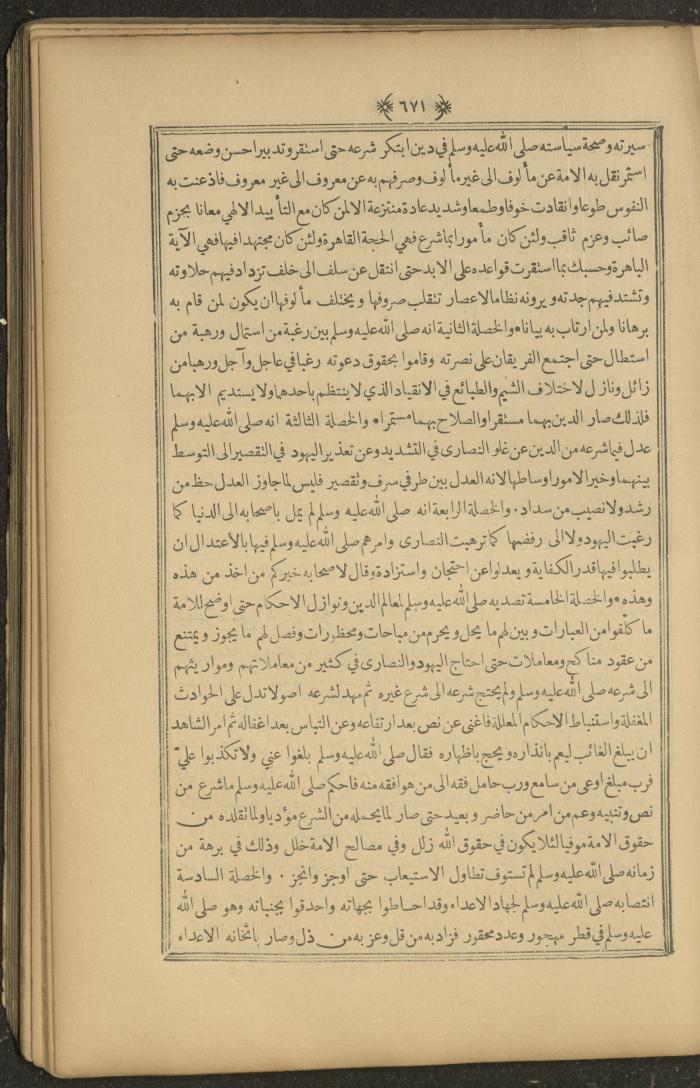 ٦٧١
سيرته وصحة سياسته صلى الله عليه وسلم في دين ابتكر شرعه حتى استقر وتدبير احسن وضعه حتى
استمر نقل به الامة عن مألوف الى غير مألوف وصرفهم به عن معروف الى غير معروف فاذعنت به
النفوس طوعا وانقادت خوفا وطمعا وشديد عادة منتزعة الا لمن كان مع التأييد الالهي معانا بحزم
صائب وعزم ثاقب ولئن كان مأمورا بما شرع فهي الحجة القاهرة ولئن كان مجتهدا فيها فهي الآية
الباهرة وحسبك بما استقرت قواعده على الابد حتى انتقل عن سلف الى خلف تزداد فيهم حلاوته
وتشتد فيهم جدته ويرونه نظاما لاعصار تتقلب صروفها ويختلف مألوفها ان يكون لمن قام به
برهانا ولمن ارتاب به بيانا * والخصلة الثانية انه صلى الله عليه وسلم بين رغبة من استمال ورهبة من
استطال حتى اجتمع الفريقان على نصرته وقاموا بحقوق دعوته رغبا في عاجل وآجل ورهبا من
زائل ونازل لاختلاف الشيم والطبائع في الانقياد الذي لا ينتظم باحدهما ولا يستديم الا بهما
فلذلك صار الدين بهما مستقرا والصلاح بهما مستمرا * والخصلة الثالثة انه صلى الله عليه وسلم
عدل فيما شرعه من الدين عن غلو النصارى في التشديد وعن تعذير اليهود في التقصير الى التوسط
بينهما وخير الامور اوساطها لانه العدل بين طرفي سرف وتقصير فليس لما جاوز العدل حظ من
رشد ولا نصيب من سداد . والخصلة الرابعة انه صلى الله عليه وسلم لم يمل باصحابه الى الدنيا كما
رغبت اليهود ولا الى رفضها كما ترهبت النصارى وامرهم صلى الله عليه وسلم فيها بالاعتدال ان
يطلبوا فيها قدر الكفاية ويعدلوا عن احتجان واستزادة وقال لاصحابه خيركم من اخذ من هذه
وهذه * والخصلة الخامسة تصديه صلى الله عليه وسلم لمعالم الدين ونوازل الاحكام حتى اوضح للامة
ما كلفوا من العبارات وبين لهم ما يحل ويحرم من مباحات ومحظورات وفصل لهم ما يجوز ويمتنع
من عقود مناكح ومعاملات حتى احتاج اليهود والنصارى في كثير من معاملاتهم ومواريثهم
الى شرعه صلى الله عليه وسلم ولم يحتج شرعه الى شرع غيره ثم مهد لشرعه اصولا تدل على الحوادث
المغفلة واستنباط الاحكام المعللة فاغنى عن نص بعد ارتفاعه وعن التباس بعد اغفاله ثم امر الشاهد
ان يبلغ الغائب ليعم بانذاره ويحج باظهاره فقال صلى الله عليه وسلم بلغوا عني ولا تكذبوا عليّ
فرب مبلغ اوعى من سامع ورب حامل فقه الى من هو افقه منه فاحكم صلى الله عليه وسلم ما شرع من
نص وتنبيه وعم من امر من حاضر وبعيد حتى صار لما يحمله من الشرع مؤديا ولما تقلده من
حقوق الامة موفيا لئلا يكون في حقوق الله زلل وفي مصالح الامة خلل وذلك في برهة من
زمانه صلى الله عليه وسلم لم تستوف تطاول الاستيعاب حتى اوجز وانجز . والخصلة السادسة
انتصابه صلى الله عليه وسلم لجهاد الاعداء وقد احاطوا بجهاته واحدقوا بجنباته وهو صلى الله
عليه وسلم في قطر مهجور وعدد محقور فزاد به من قل وعز به من ذل وصار باثخانه الاعداء